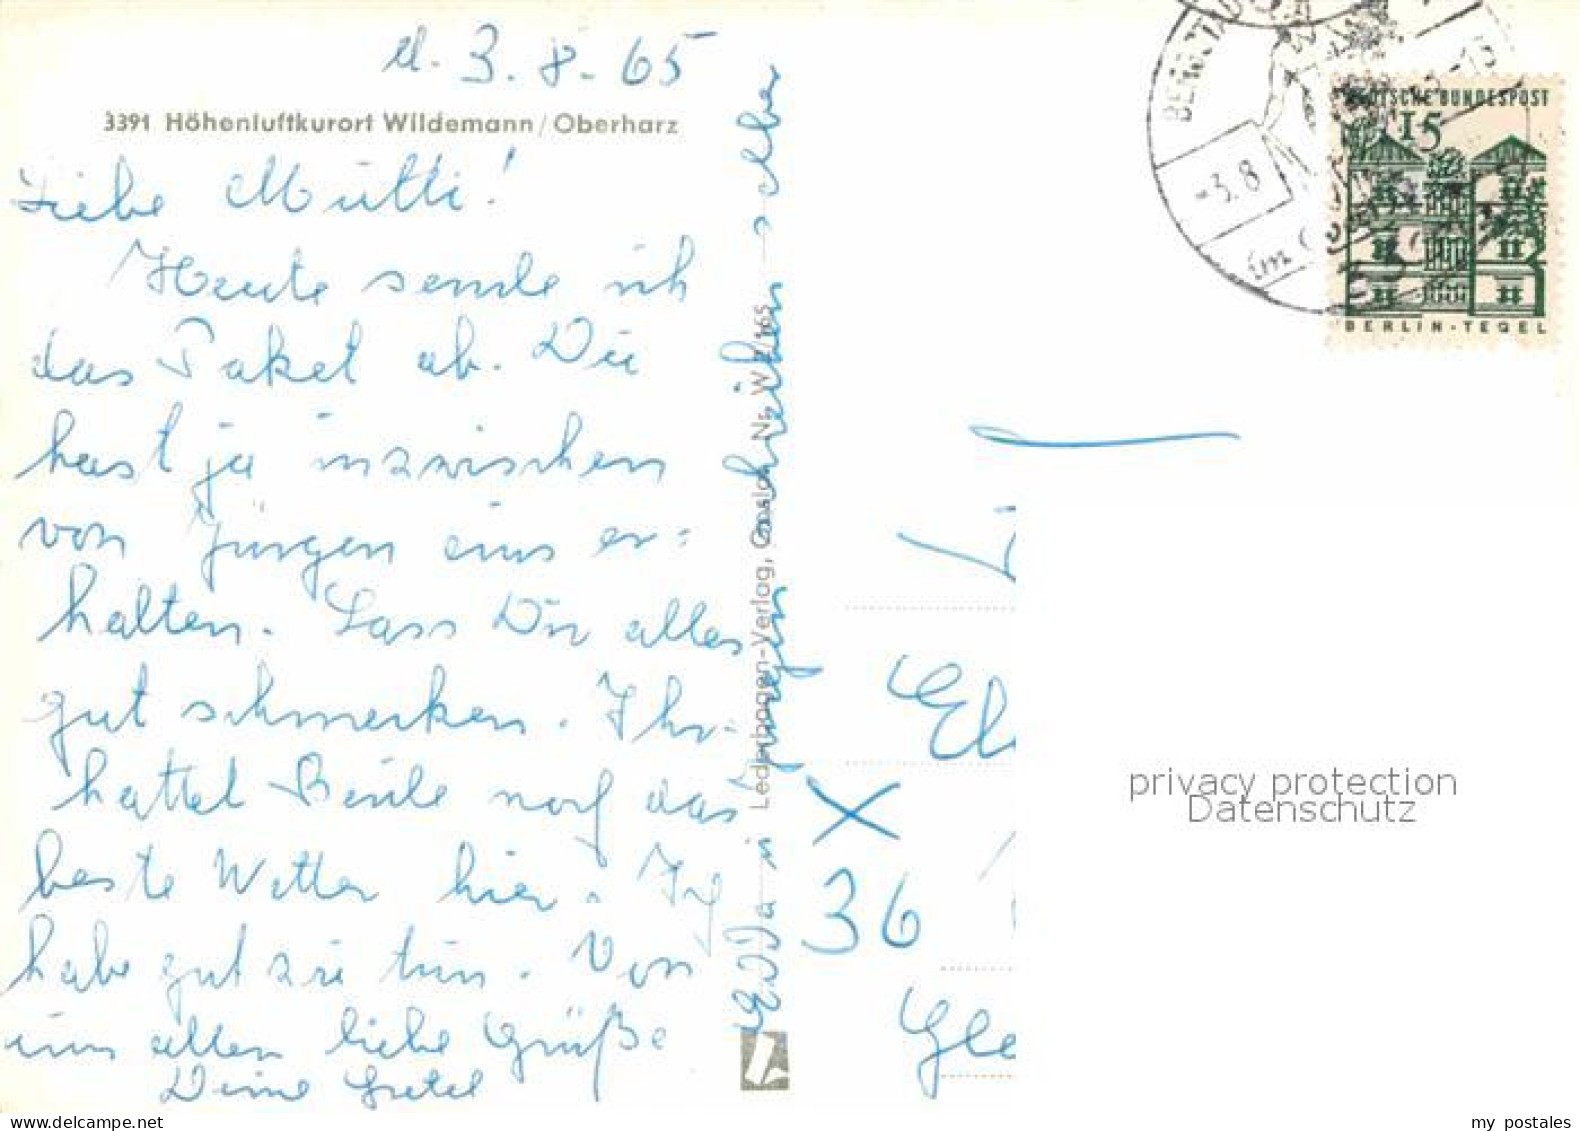 d. 3.8.65
3391 Höhenluftkurort Wildemann/Oberharz
Liebe Mutti!
Heute sende ich
das Paket ab. Du
hast ja inzwischen
von Jürgen eins er=
halten. Lass Dir alles
gut schmecken. Ihr
hattet Beide noch das
beste Wetter hier. Ich
habe gut zu tun. Von
uns allen liebe Grüße
Deine Gretel
Jürgen schreiben selber
Lederbogen-Verlag, Goslar, Nr. W
DEUTSCHE BUNDESPOST
15
BERLIN-TEGEL
-3.8
im
36
Gle
privacy protection
Datenschutz
my postales